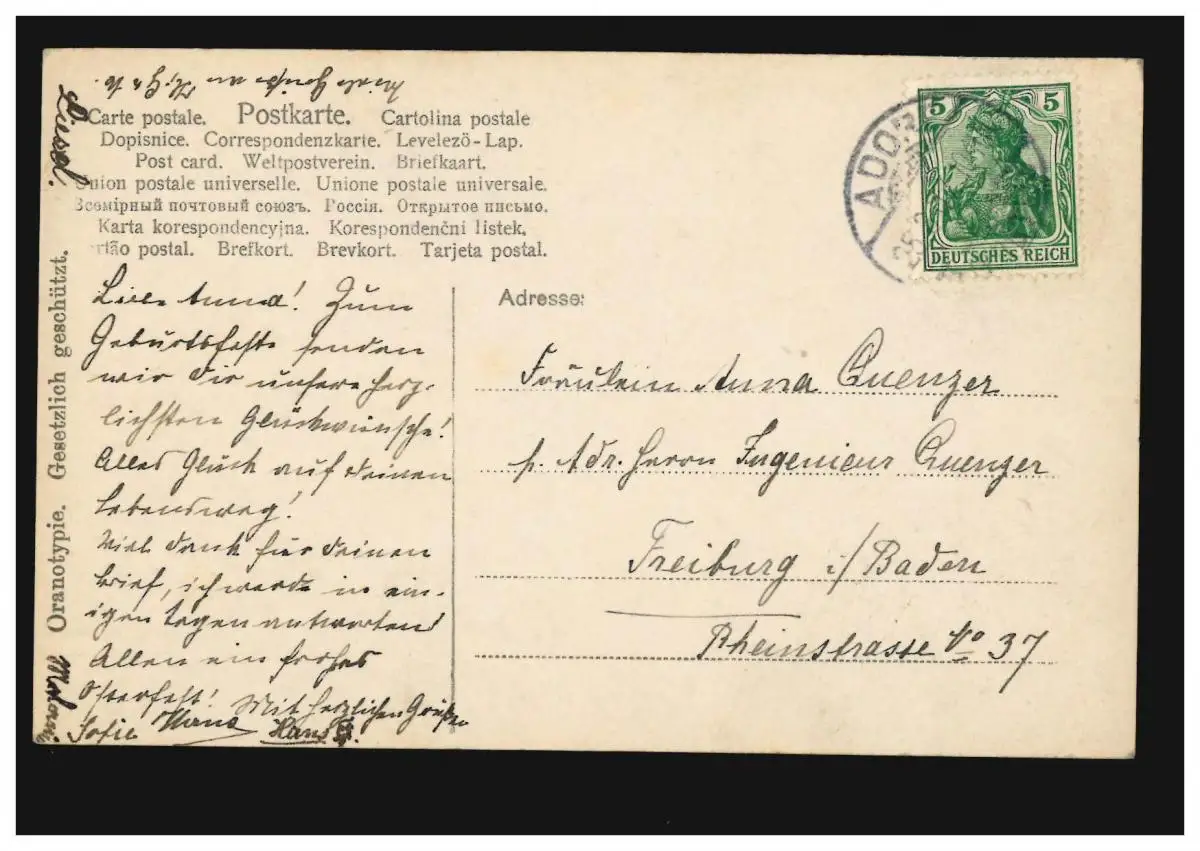 Carte postale. Postkarte. Cartolina postale
Dopisnice. Correspondenzkarte. Levelező-Lap.
Post card. Weltpostverein. Briefkaart.
Union postale universelle. Unione postale universale.
Всемірный почтовый союзъ. Россія. Открытое письмо.
Karta korespondencyjna. Korespondenční lístek.
rtão postal. Brefkort. Brevkort. Tarjeta postal.
Liesel.
Oranotypie. Gesetzlich geschützt.
Melanie
ADOR
5 5
DEUTSCHES REICH
Liebe Anna! Zum
Geburtsfeste senden
wir Dir unsere herz-
lichsten Glückwünsche!
Alles Glück auf deinen
Lebensweg!
Viel Dank für deinen
Brief, ich werde in ein-
igen Tagen antworten!
Allen ein frohes
Osterfest! Mit herzlichen Grüßen
Sofie Hans
Adresse:
Fräulein Anna Quenzer
p. Adr. Herrn Ingenieur Quenzer
Freiburg i/Baden
Rheinstrasse No 37